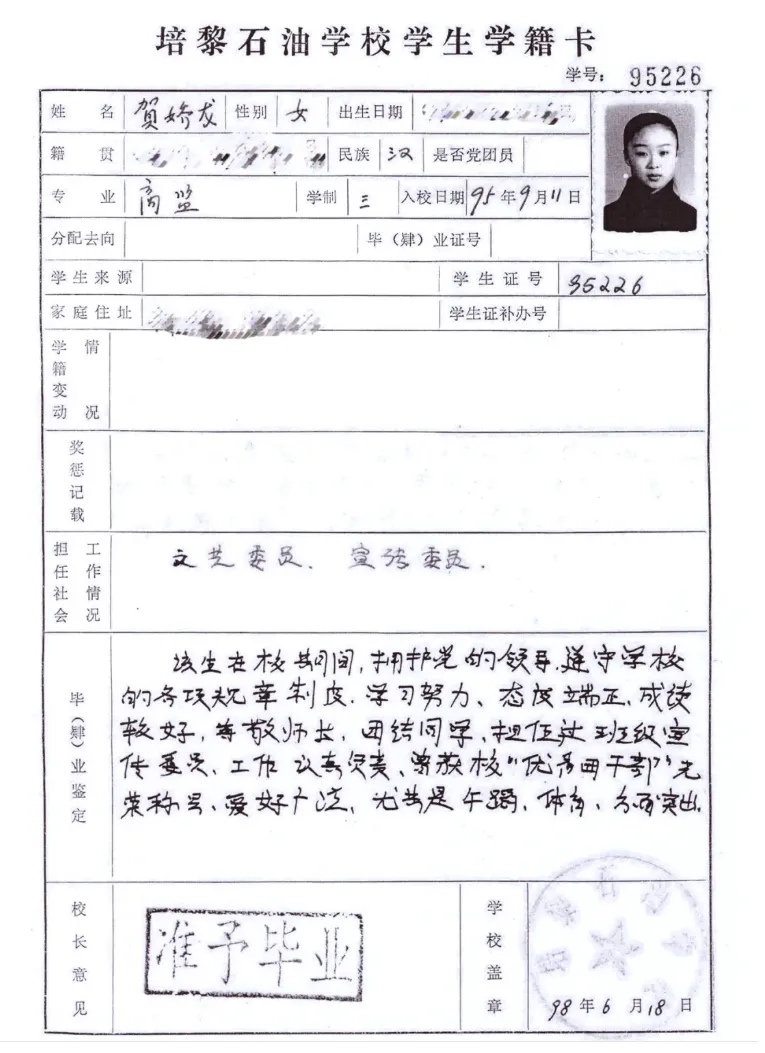 培黎石油学校学生学籍卡
学号: 95226
姓名 賀娇龙 性别 女 出生日期
籍贯 民族 汉 是否党团员
专业 商监 学制 三 入校日期 95年9月11日
分配去向 毕（肄）业证号
学生来源 学生证号 95226
家庭住址 学生证补办号
学籍变动情况
奖惩记载
担任社会工作情况 文艺委员、宣传委员.
毕（肄）业鉴定
该生在校期间,拥护党的领导.遵守学校
的各项规章制度.学习努力、态度端正.成绩
较好,尊敬师长,团结同学、担任过班级宣
传委员、工作认真负责、曾获校"优秀团干部"光
荣称号、爱好广泛,尤其是午蹈、体育、方面突出.
校长意见 准予毕业 学校盖章
98年6月18日